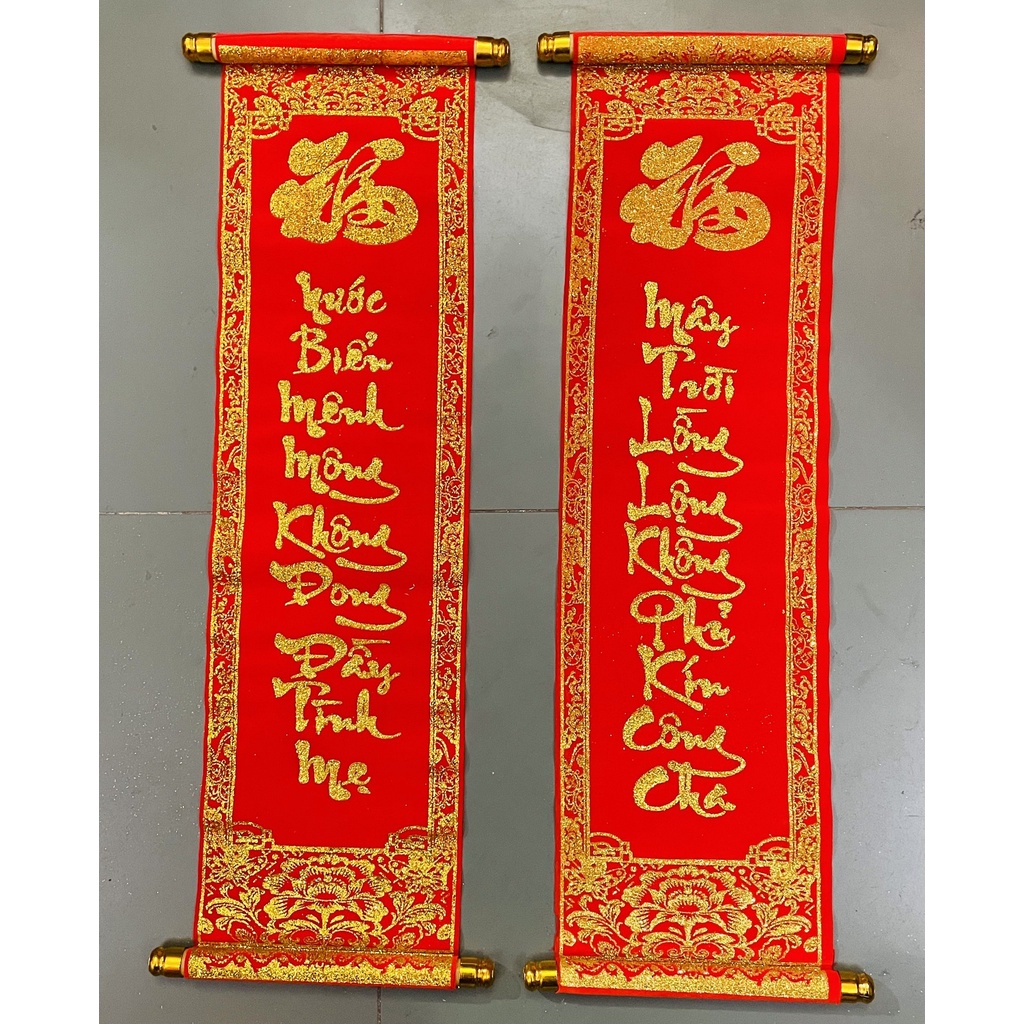 福
Nước
Biển
Mênh
Mông
Không
Đong
Đầy
Tình
Mẹ
福
Mây
Trời
Lồng
Lộng
Không
Phủ
Kín
Công
Cha